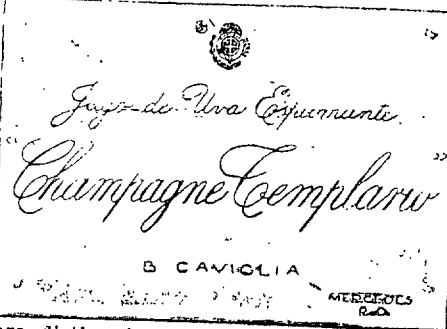 Jugo de Uva Espumante
"Champagne Templario"
B CAVIGLIA
MERCEDES
R.O.